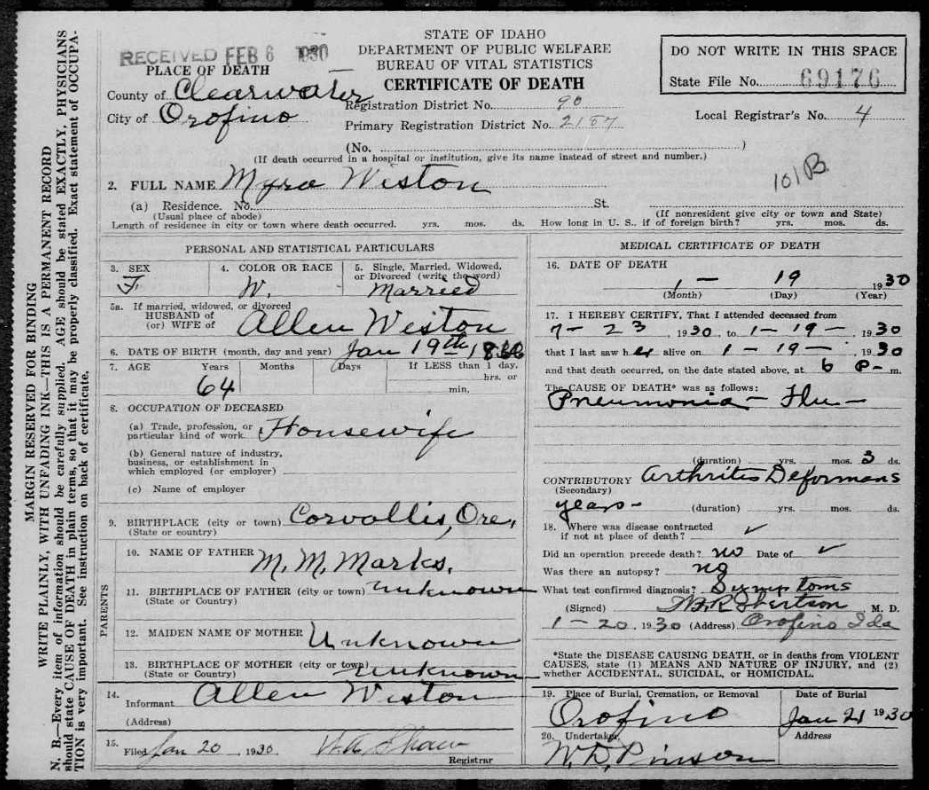 RECEIVED FEB 6 1930
STATE OF IDAHO
DEPARTMENT OF PUBLIC WELFARE
BUREAU OF VITAL STATISTICS
CERTIFICATE OF DEATH
DO NOT WRITE IN THIS SPACE
State File No. 69176
PLACE OF DEATH
County of Clearwater
City of Orofino
Registration District No. 90
Primary Registration District No. 2157
Local Registrar's No. 4
(No. )
(If death occurred in a hospital or institution, give its name instead of street and number.)
101B
2. FULL NAME Myra Weston
(a) Residence. No. St.
(Usual place of abode)
(If nonresident give city or town and State)
Length of residence in city or town where death occurred. yrs. mos. ds. How long in U. S., if of foreign birth? yrs. mos. ds.
PERSONAL AND STATISTICAL PARTICULARS
3. SEX
F
4. COLOR OR RACE
W.
5. Single, Married, Widowed,
or Divorced (write the word)
Married
5a. If married, widowed, or divorced
HUSBAND of
(or) WIFE of Allen Weston
6. DATE OF BIRTH (month, day and year) Jan 19th, 1866
7. AGE Years Months Days If LESS than 1 day.
64 hrs. or
min.
8. OCCUPATION OF DECEASED
(a) Trade, profession, or
particular kind of work Housewife
(b) General nature of industry,
business, or establishment in
which employed (or employer)
(c) Name of employer
9. BIRTHPLACE (city or town) Corvallis, Ore,
(State or country)
PARENTS
10. NAME OF FATHER M. M. Marks.
11. BIRTHPLACE OF FATHER (city or town) unknown
(State or Country)
12. MAIDEN NAME OF MOTHER Unknown
13. BIRTHPLACE OF MOTHER (city or town)
(State or Country) unknown
14.
Informant Allen Weston
(Address)
15.
Filed Jan 20, 1930. Shaw
Registrar
MEDICAL CERTIFICATE OF DEATH
16. DATE OF DEATH
1 - 19 1930
(Month) (Day) (Year)
17. I HEREBY CERTIFY, That I attended deceased from
7 - 23, 1930, to 1 - 19 -, 1930
that I last saw her alive on 1 - 19 -, 1930
and that death occurred, on the date stated above, at 6 P - m.
The CAUSE OF DEATH* was as follows:
Pneumonia - Flu -
(duration) yrs. mos. 3 ds.
CONTRIBUTORY Arthritis Deformans
(Secondary)
years - (duration) yrs. mos. ds.
18. Where was disease contracted
if not at place of death? ✓
Did an operation precede death? no Date of ✓
Was there an autopsy? no
What test confirmed diagnosis? Symptoms
(Signed) Robertson M. D.
1 - 20. 1930 (Address) Orofino Ida
*State the DISEASE CAUSING DEATH, or in deaths from VIOLENT
CAUSES, state (1) MEANS AND NATURE OF INJURY, and (2)
whether ACCIDENTAL, SUICIDAL, or HOMICIDAL.
19. Place of Burial, Cremation, or Removal Date of Burial
Orofino Jan 21 1930
20. Undertaker, Address
W. D. Pinson
MARGIN RESERVED FOR BINDING
WRITE PLAINLY, WITH UNFADING INK—THIS IS A PERMANENT RECORD
N. B.—Every item of information should be carefully supplied. AGE should be stated EXACTLY, PHYSICIANS
should state CAUSE OF DEATH in plain terms, so that it may be properly classified. Exact statement of OCCUPA-
TION is very important. See instruction on back of certificate.